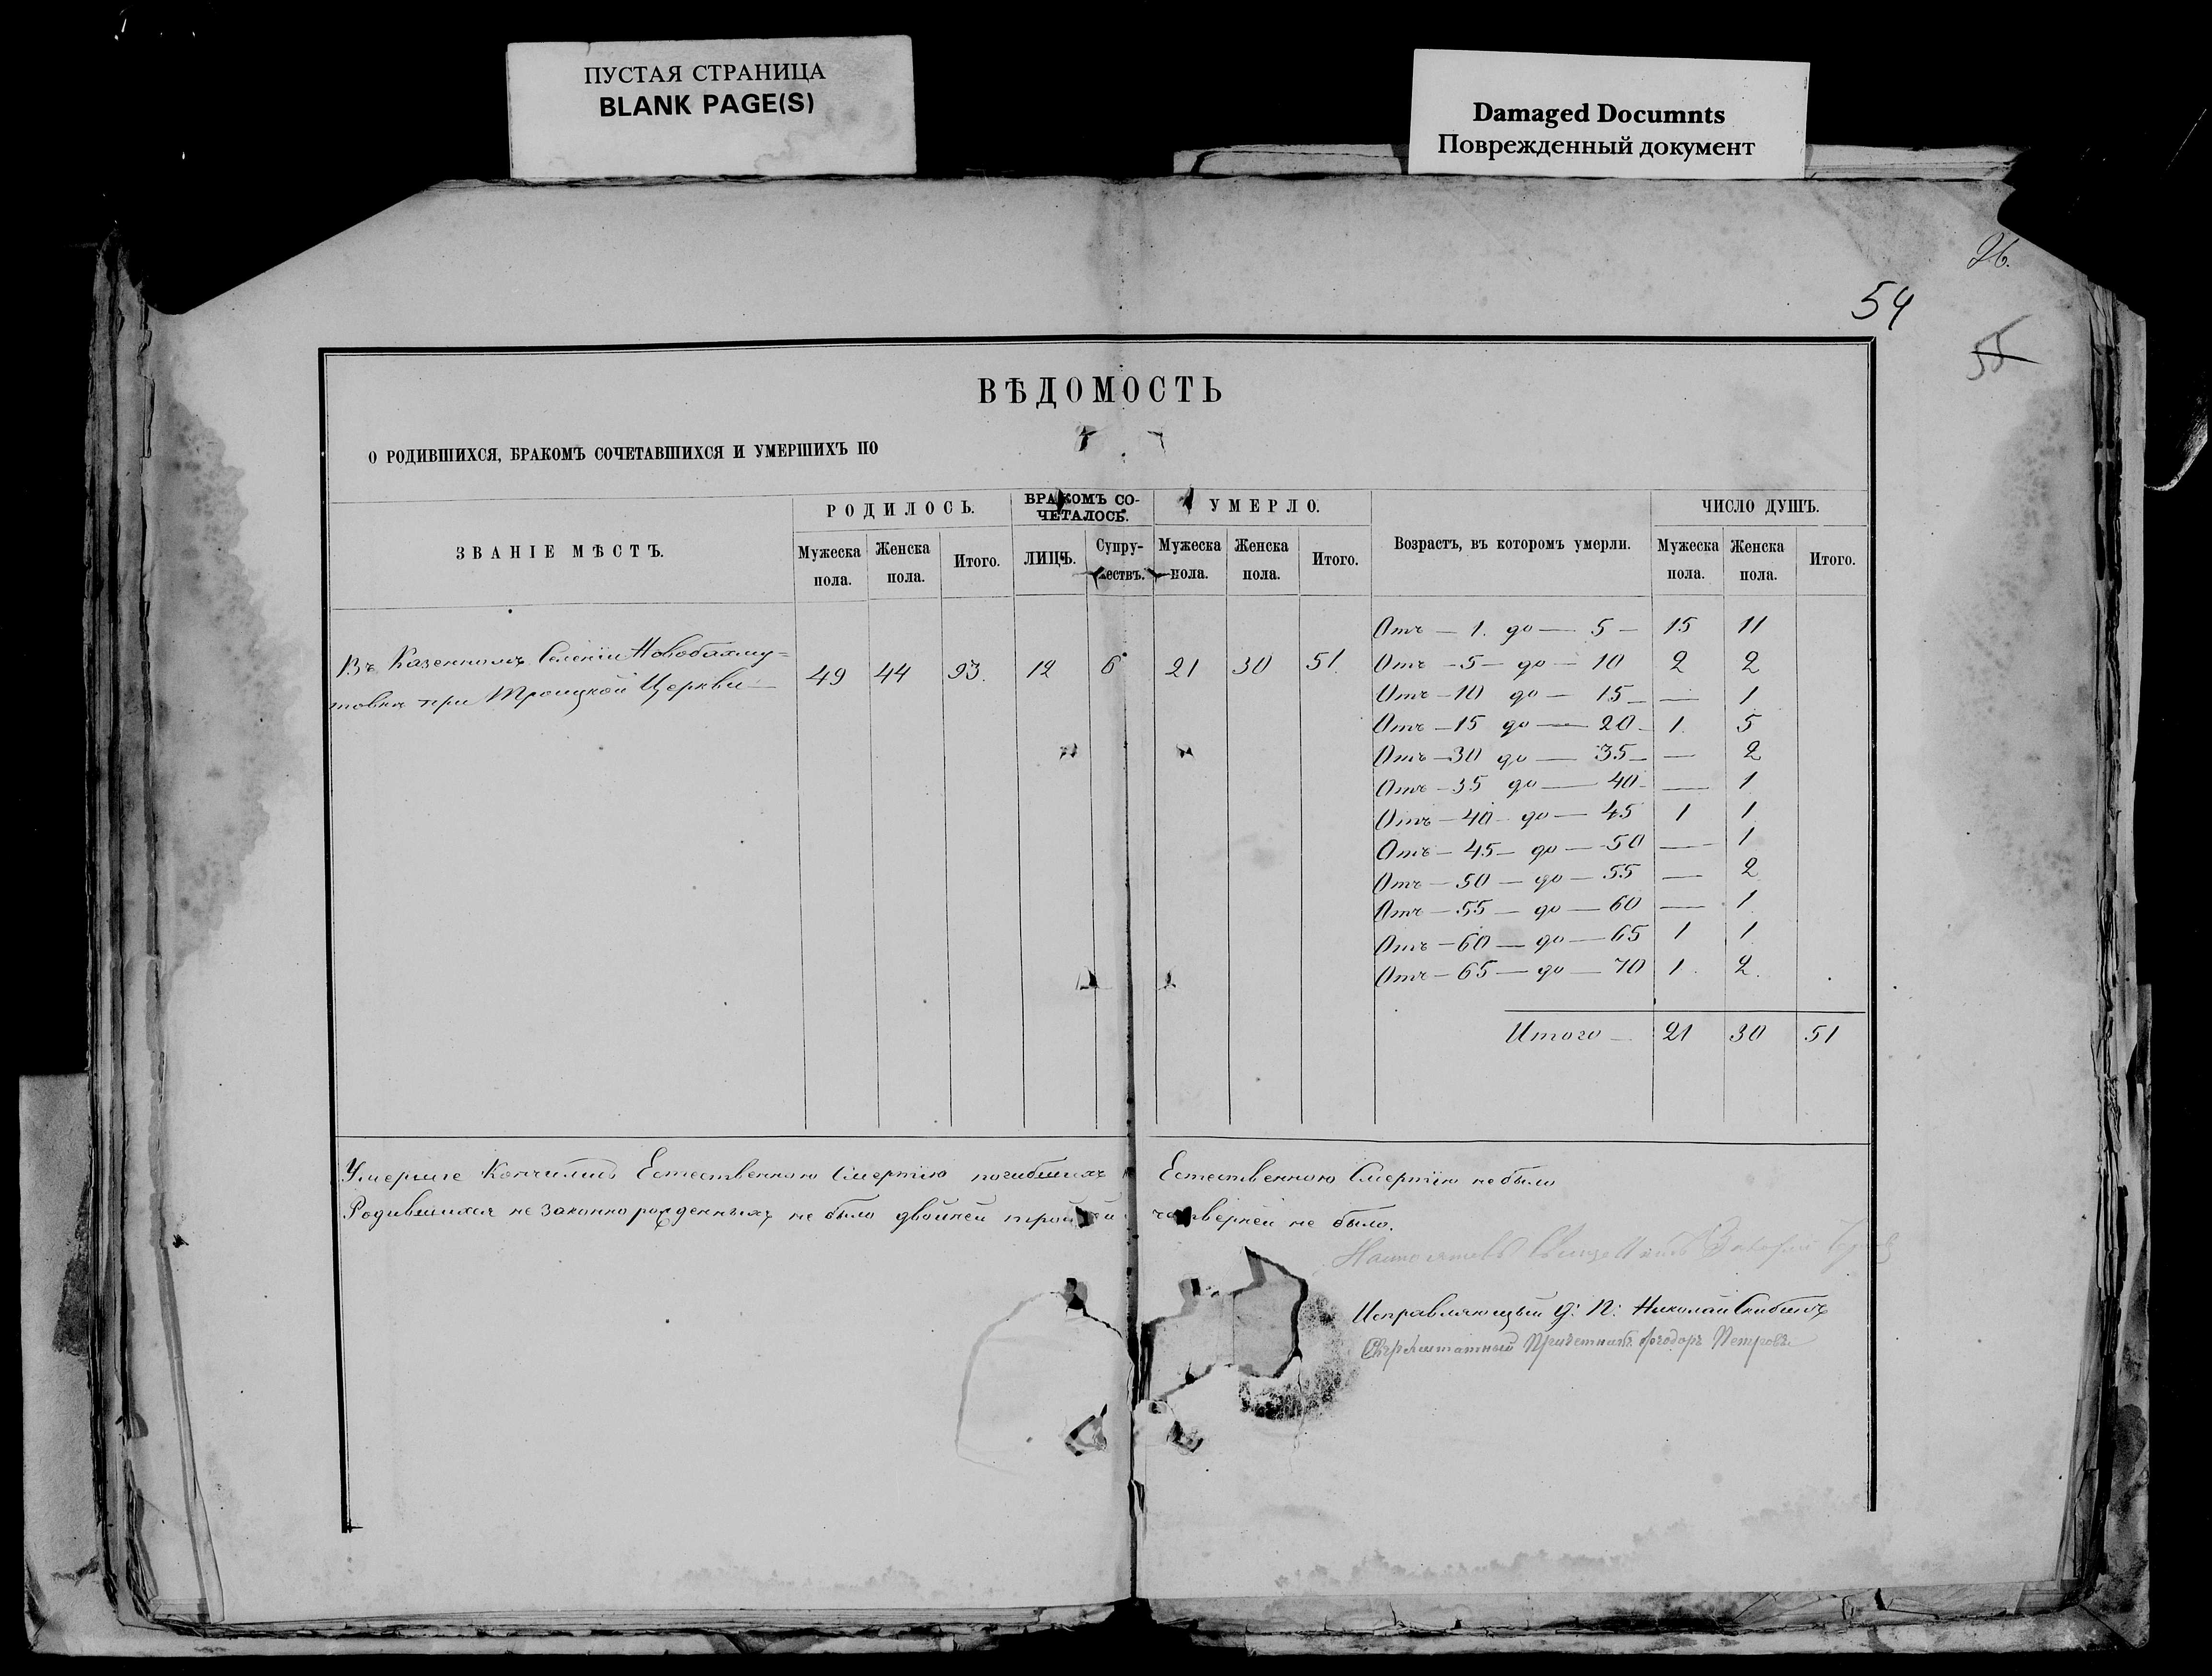 ПУСТАЯ СТРАНИЦА
BLANK PAGE(S)
Damaged Documnts
Поврежденный документ
26.
54
55
ВѢДОМОСТЬ
О РОДИВШИХСЯ, БРАКОМЪ СОЧЕТАВШИХСЯ И УМЕРШИХЪ ПО
ЗВАНІЕ МѢСТЪ. РОДИЛОСЬ. БРАКОМЪ СО-ЧЕТАЛОСЬ. УМЕРЛО. Возрастъ, въ которомъ умерли. ЧИСЛО ДУШЪ.
Мужеска пола. Женска пола. Итого. ЛИЦЪ. Супру-жествъ. Мужеска пола. Женска пола. Итого. Мужеска пола. Женска пола. Итого.
Въ Казенномъ Селеніи Новобахму=
товкѣ при Троицкой Церкви — 49 44 93. 12 6 21 30 51
Отъ — 1. до — 5 — 15 11
Отъ — 5 — до — 10 2 2
Отъ — 10 до — 15 — — 1
Отъ — 15 до — 20 — 1. 5
Отъ — 30 до — 35 — — 2
Отъ — 35 до — 40 — — 1
Отъ — 40 до — 45 1 1
Отъ — 45 — до — 50 — 1
Отъ — 50 — до — 55 — 2
Отъ — 55 — до — 60 — 1
Отъ — 60 — до — 65 1 1
Отъ — 65 — до — 70 1. 2.
Итого — 21 30 51
Умершіе Кончились Естественною Смертію погибшихъ Естественною Смертію небыло
Родившихся не законно рожденныхъ не было двойней тройней четверней не было.
Настоятель
Исправляющій д: п: Николай Скибинъ
Сверхштатный Причетникъ Ѳеодоръ Петровъ